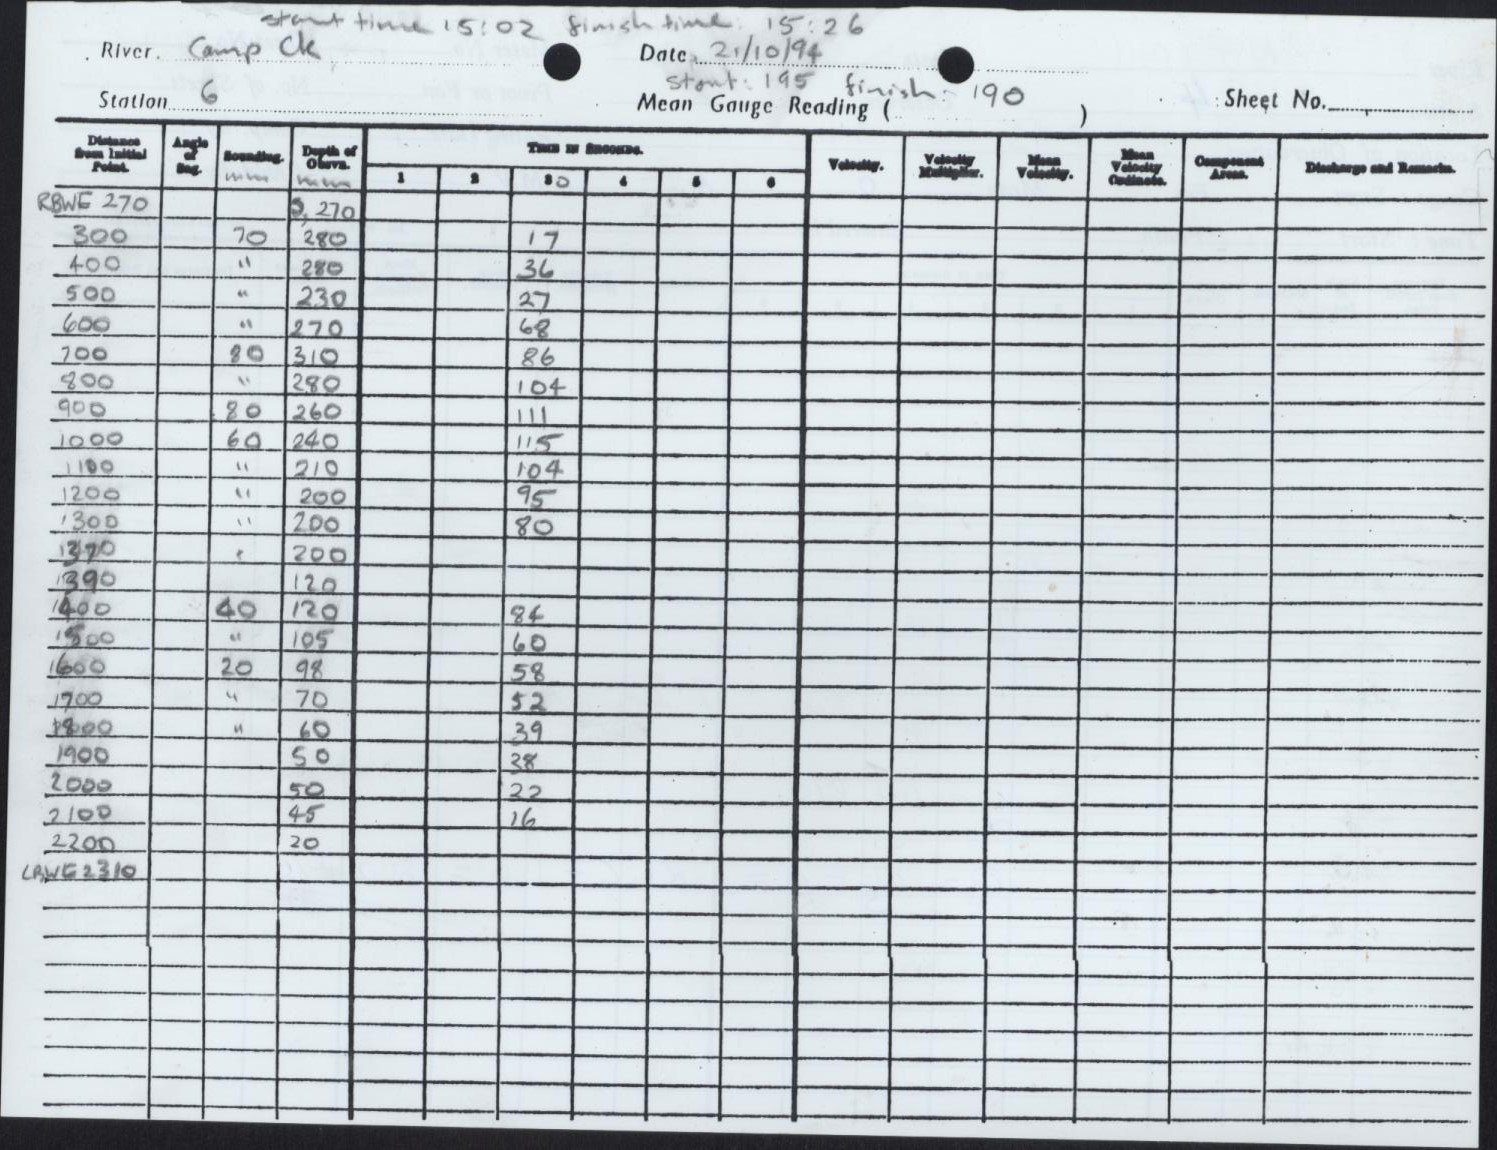 start time 15:02 finish time: 15:26
River. Camp Ck Date. 21/10/94
start: 195 finish: 190
Station 6 Mean Gauge Reading ( ) Sheet No.
Distance from Initial Point. Angle of Sag. Sounding. mm Depth of Obsvn. mm TIME IN SECONDS. Velocity. Velocity Multiplier. Mean Velocity. Mean Velocity Ordinate. Component Areas. Discharge and Remarks.
1 2 30 4 5 6
RBWE 270 0, 270
300 70 280 17
400 " 280 36
500 " 230 27
600 " 270 68
700 80 310 86
800 " 280 104
900 80 260 111
1000 60 240 115
1100 " 210 104
1200 " 200 95
1300 " 200 80
1370 " 200
1390 120
1400 40 120 84
1500 " 105 60
1600 20 98 58
1700 " 70 52
1800 " 60 39
1900 50 38
2000 50 22
2100 45 16
2200 20
LBWE 2310